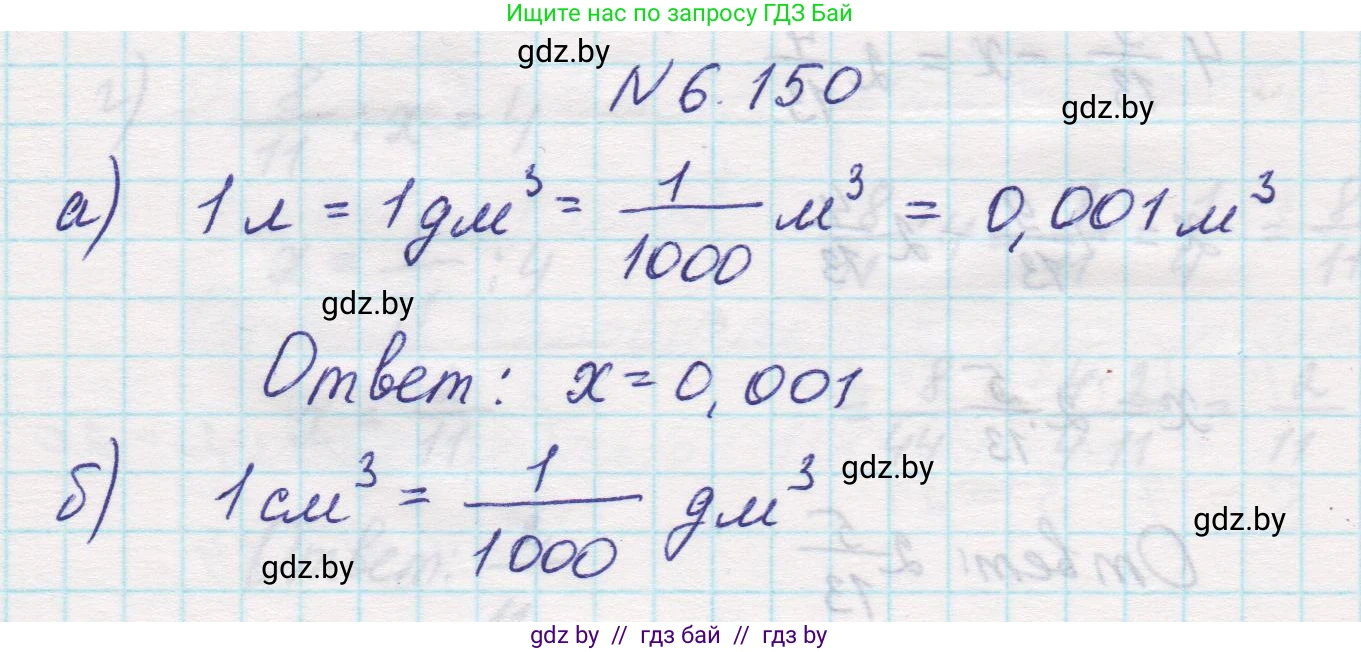 Ищите нас по запросу ГДЗ Бай
gdz.by
N 6.150
gdz.by
а) 1 л = 1 дм³ = 1/1000 м³ = 0,001 м³
gdz.by
Ответ: x = 0,001
б) 1 см³ = 1/1000 дм³
gdz.by
gdz.by
gdz.by
gdz by // гдз бай // гдз by